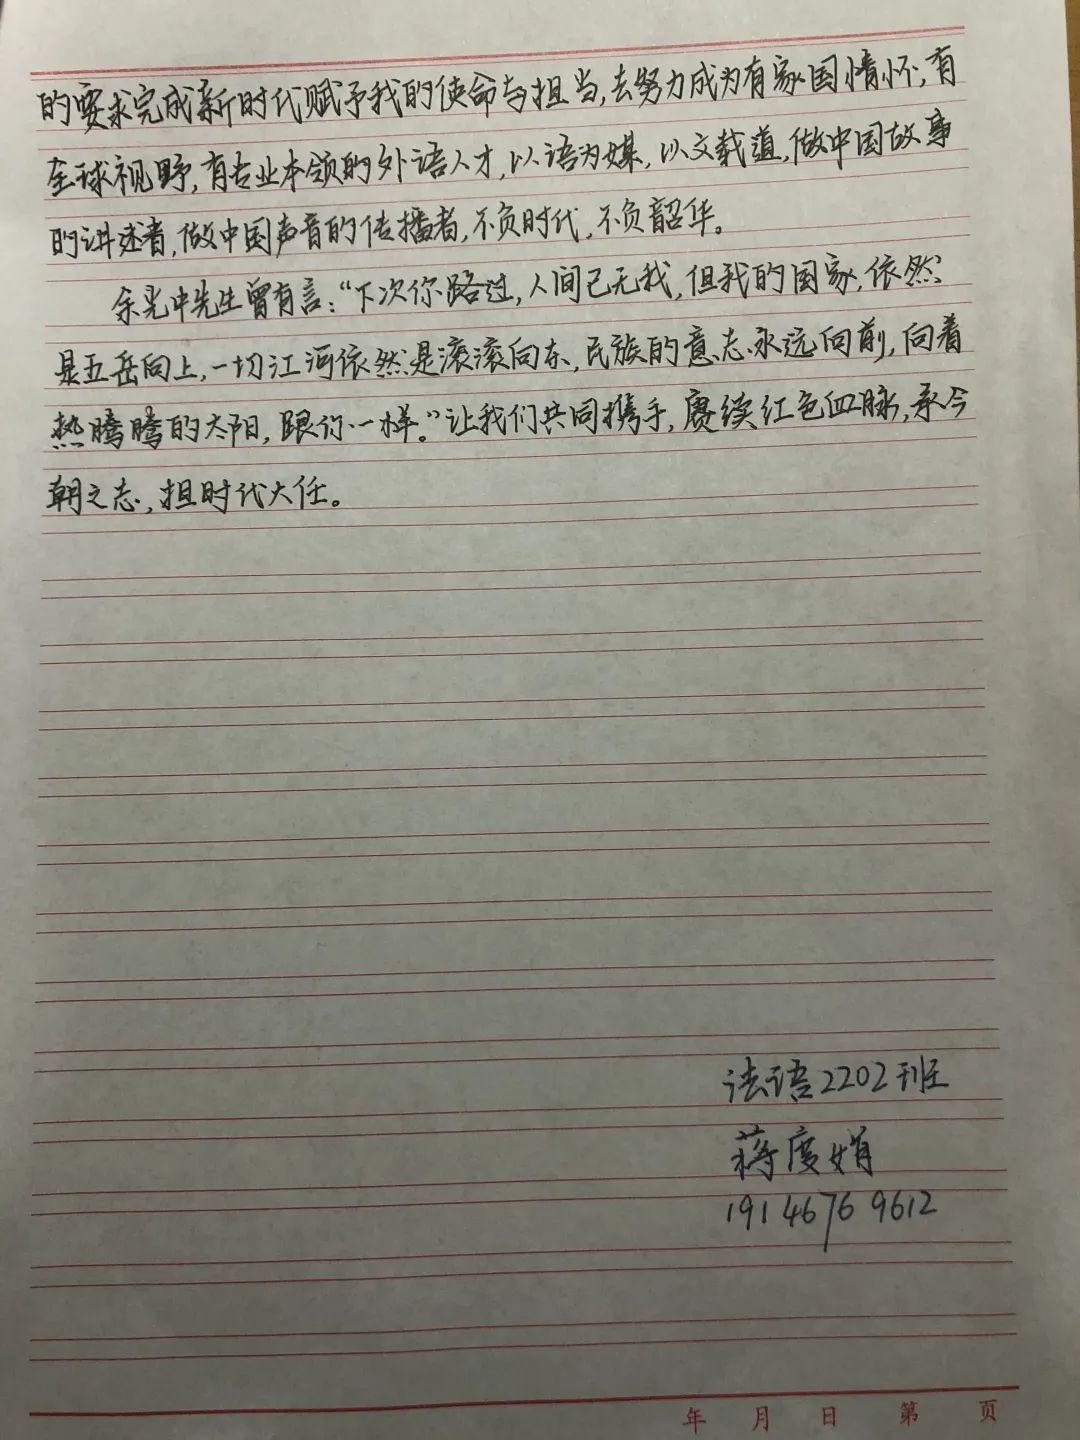 的要求完成新时代赋予我的使命与担当,去努力成为有家国情怀,有
全球视野,有专业本领的外语人才,以语为媒,以文载道,做中国故事
的讲述者,做中国声音的传播者,不负时代,不负韶华。
余光中先生曾有言:“下次你路过,人间已无我,但我的国家,依然
是五岳向上,一切江河依然是滚滚向东,民族的意志永远向前,向着
热腾腾的太阳,跟你一样。”让我们共同携手,赓续红色血脉,承今
朝之志,担时代大任。
法语2202班
蒋度娟
19146769612
年 月 日 第 页